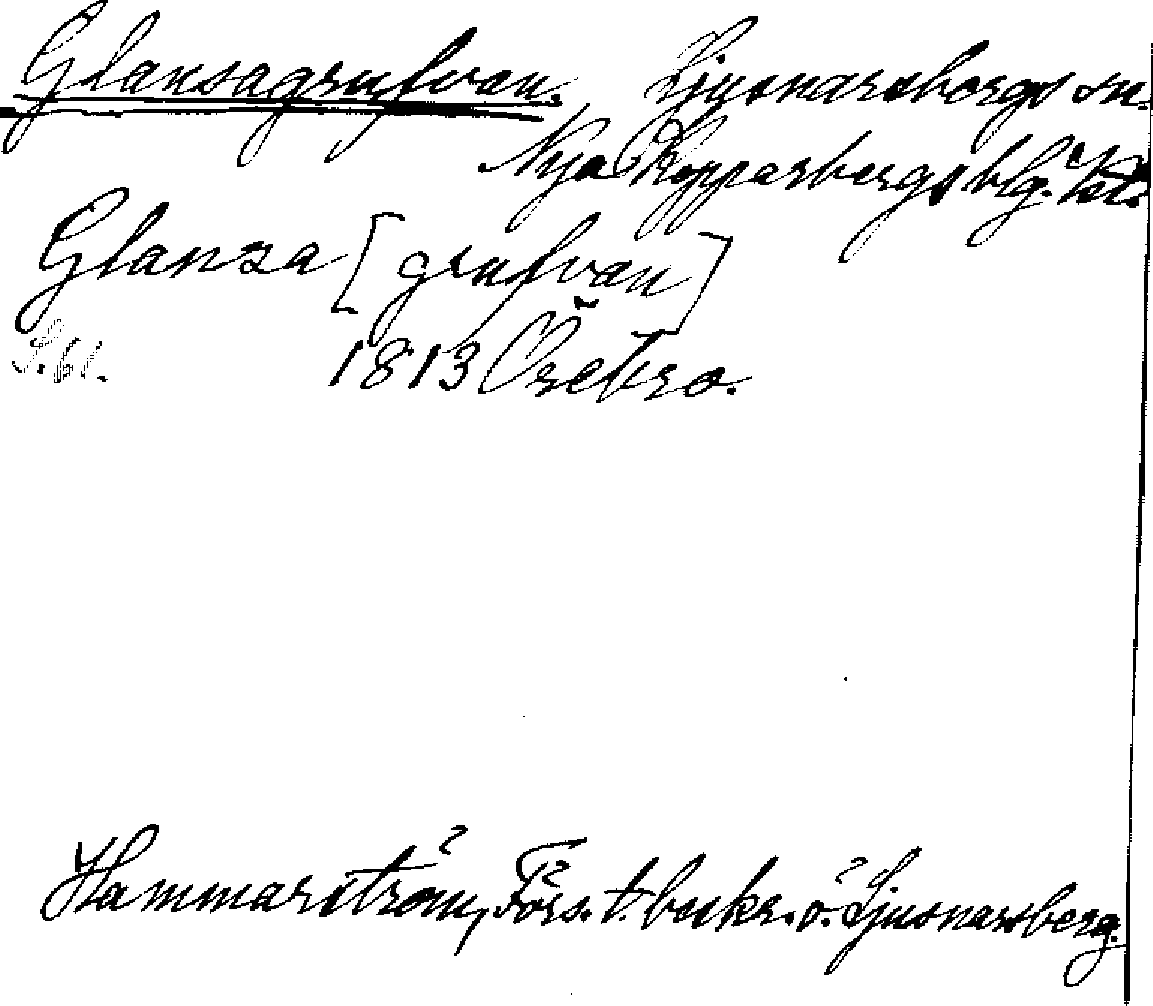 Glansagrufvan. Ljusnarsbergs sn.
Nya Kopparbergs blg. Vst.
Glanza [grufvan]
S. 61. 1813 Örebro.
Hammarström, Förs. t. beskr. ö. Ljusnarsberg.